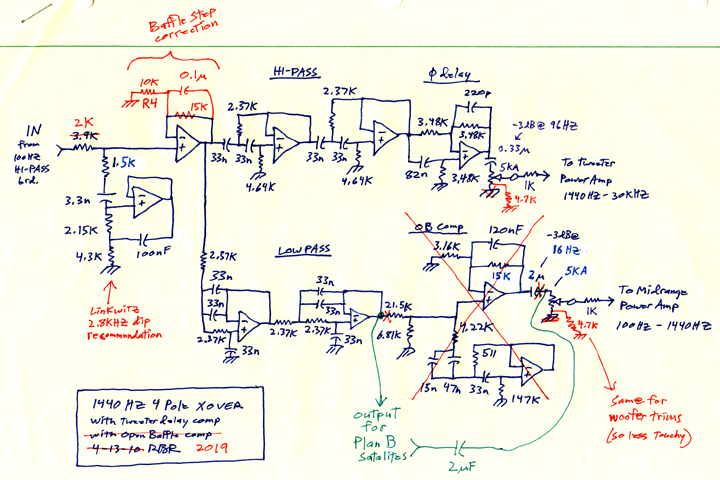 Baffle Step
correction
HI-PASS
Φ delay
10K
R4
0.1µ
15K
2K
3.9K
IN
From
100HZ
HI-PASS
brd.
1.5K
3.3n
2.15K
4.3K
100nF
Linkwitz
2.8KHZ dip
recommendation
2.37K
33n
33n
4.64K
2.37K
33n
33n
4.64K
3.48K
220p
3.48K
82n
3.48K
-3dB@ 96HZ
0.33µ
5KA
1K
4.7K
To tweeter
Power Amp
1440HZ-30KHZ
LOWPASS
2.37K
33n
33n
2.37K
33n
2.37K
33n
2.37K
33n
21.5K
6.81K
OB Comp
3.16K
120nF
15K
4.22K
15n
47n
33n
511
147K
-3dB@
16HZ
2µ
5KA
1K
4.7K
To Midrange
Power Amp
100HZ-1440HZ
same for
woofer trims
(so less touchy)
output
for
Plan B
Satalites
2µF
1440 HZ 4 Pole XOVER
with Tweeter delay comp
with Open Baffle comp
4-13-10 RBR 2019